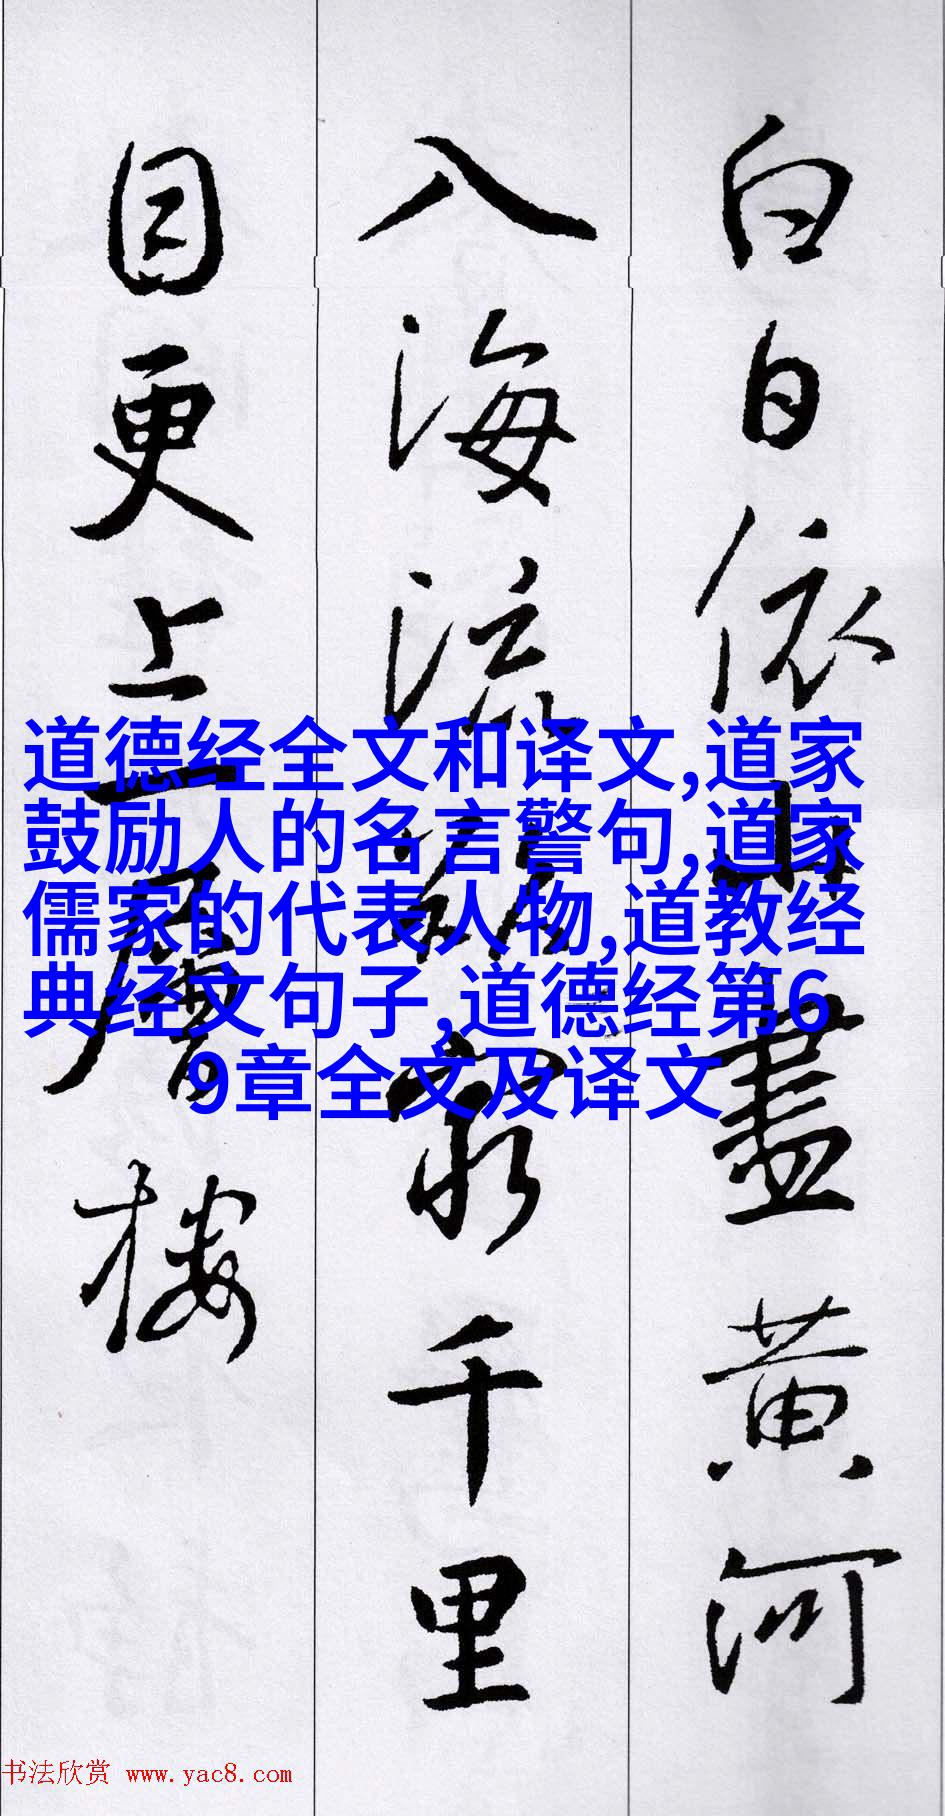 白日依山盡黄河
入海流欲窮千里
目更上一層樓
道德经全文和译文,道家
鼓励人的名言警句,道家
儒家的代表人物,道教经
典经文句子,道德经第6
9章全文及译文
书法欣赏 www.yac8.com